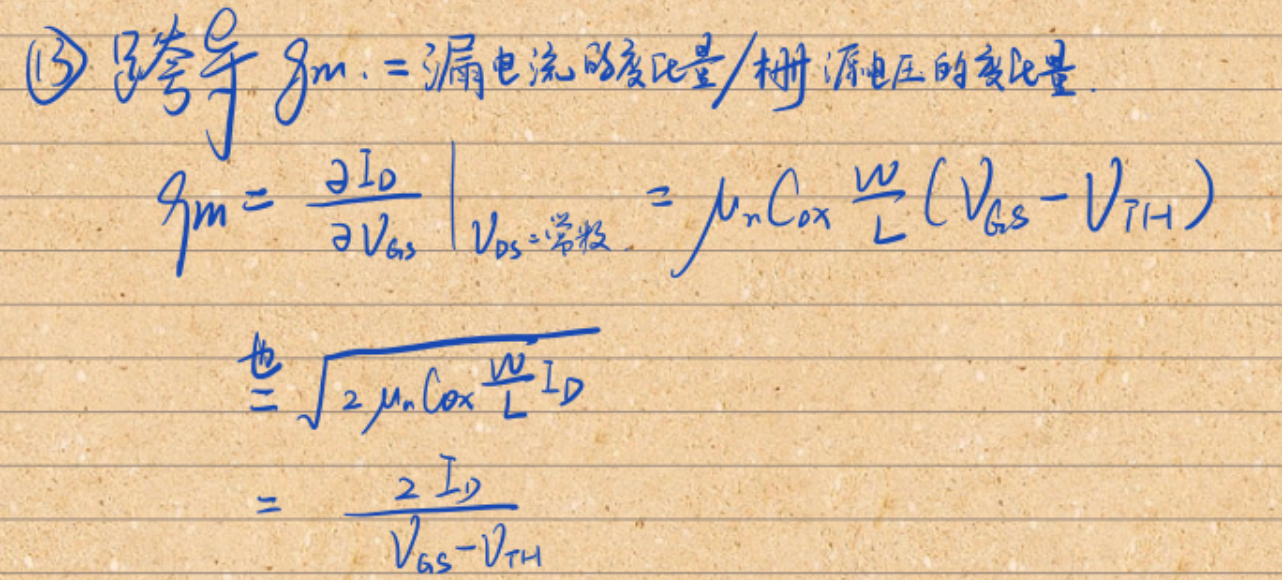 ⑬ 跨导 gm. = 漏电流的变化量/栅源电压的变化量.
gm = ∂I_D/∂V_GS |_{V_DS=常数.} = μ_n C_ox W/L (V_GS - V_TH)
也= √(2 μ_n C_ox W/L I_D)
= 2 I_D / (V_GS - V_TH)